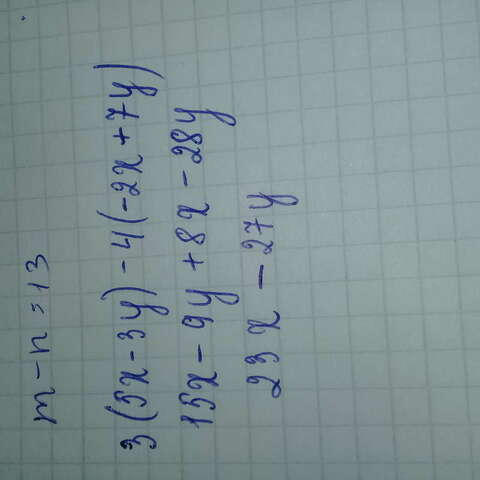 m - n = 13
3(5x - 3y) - 4(-2x + 7y)
15x - 9y + 8x - 28y
23x - 27y